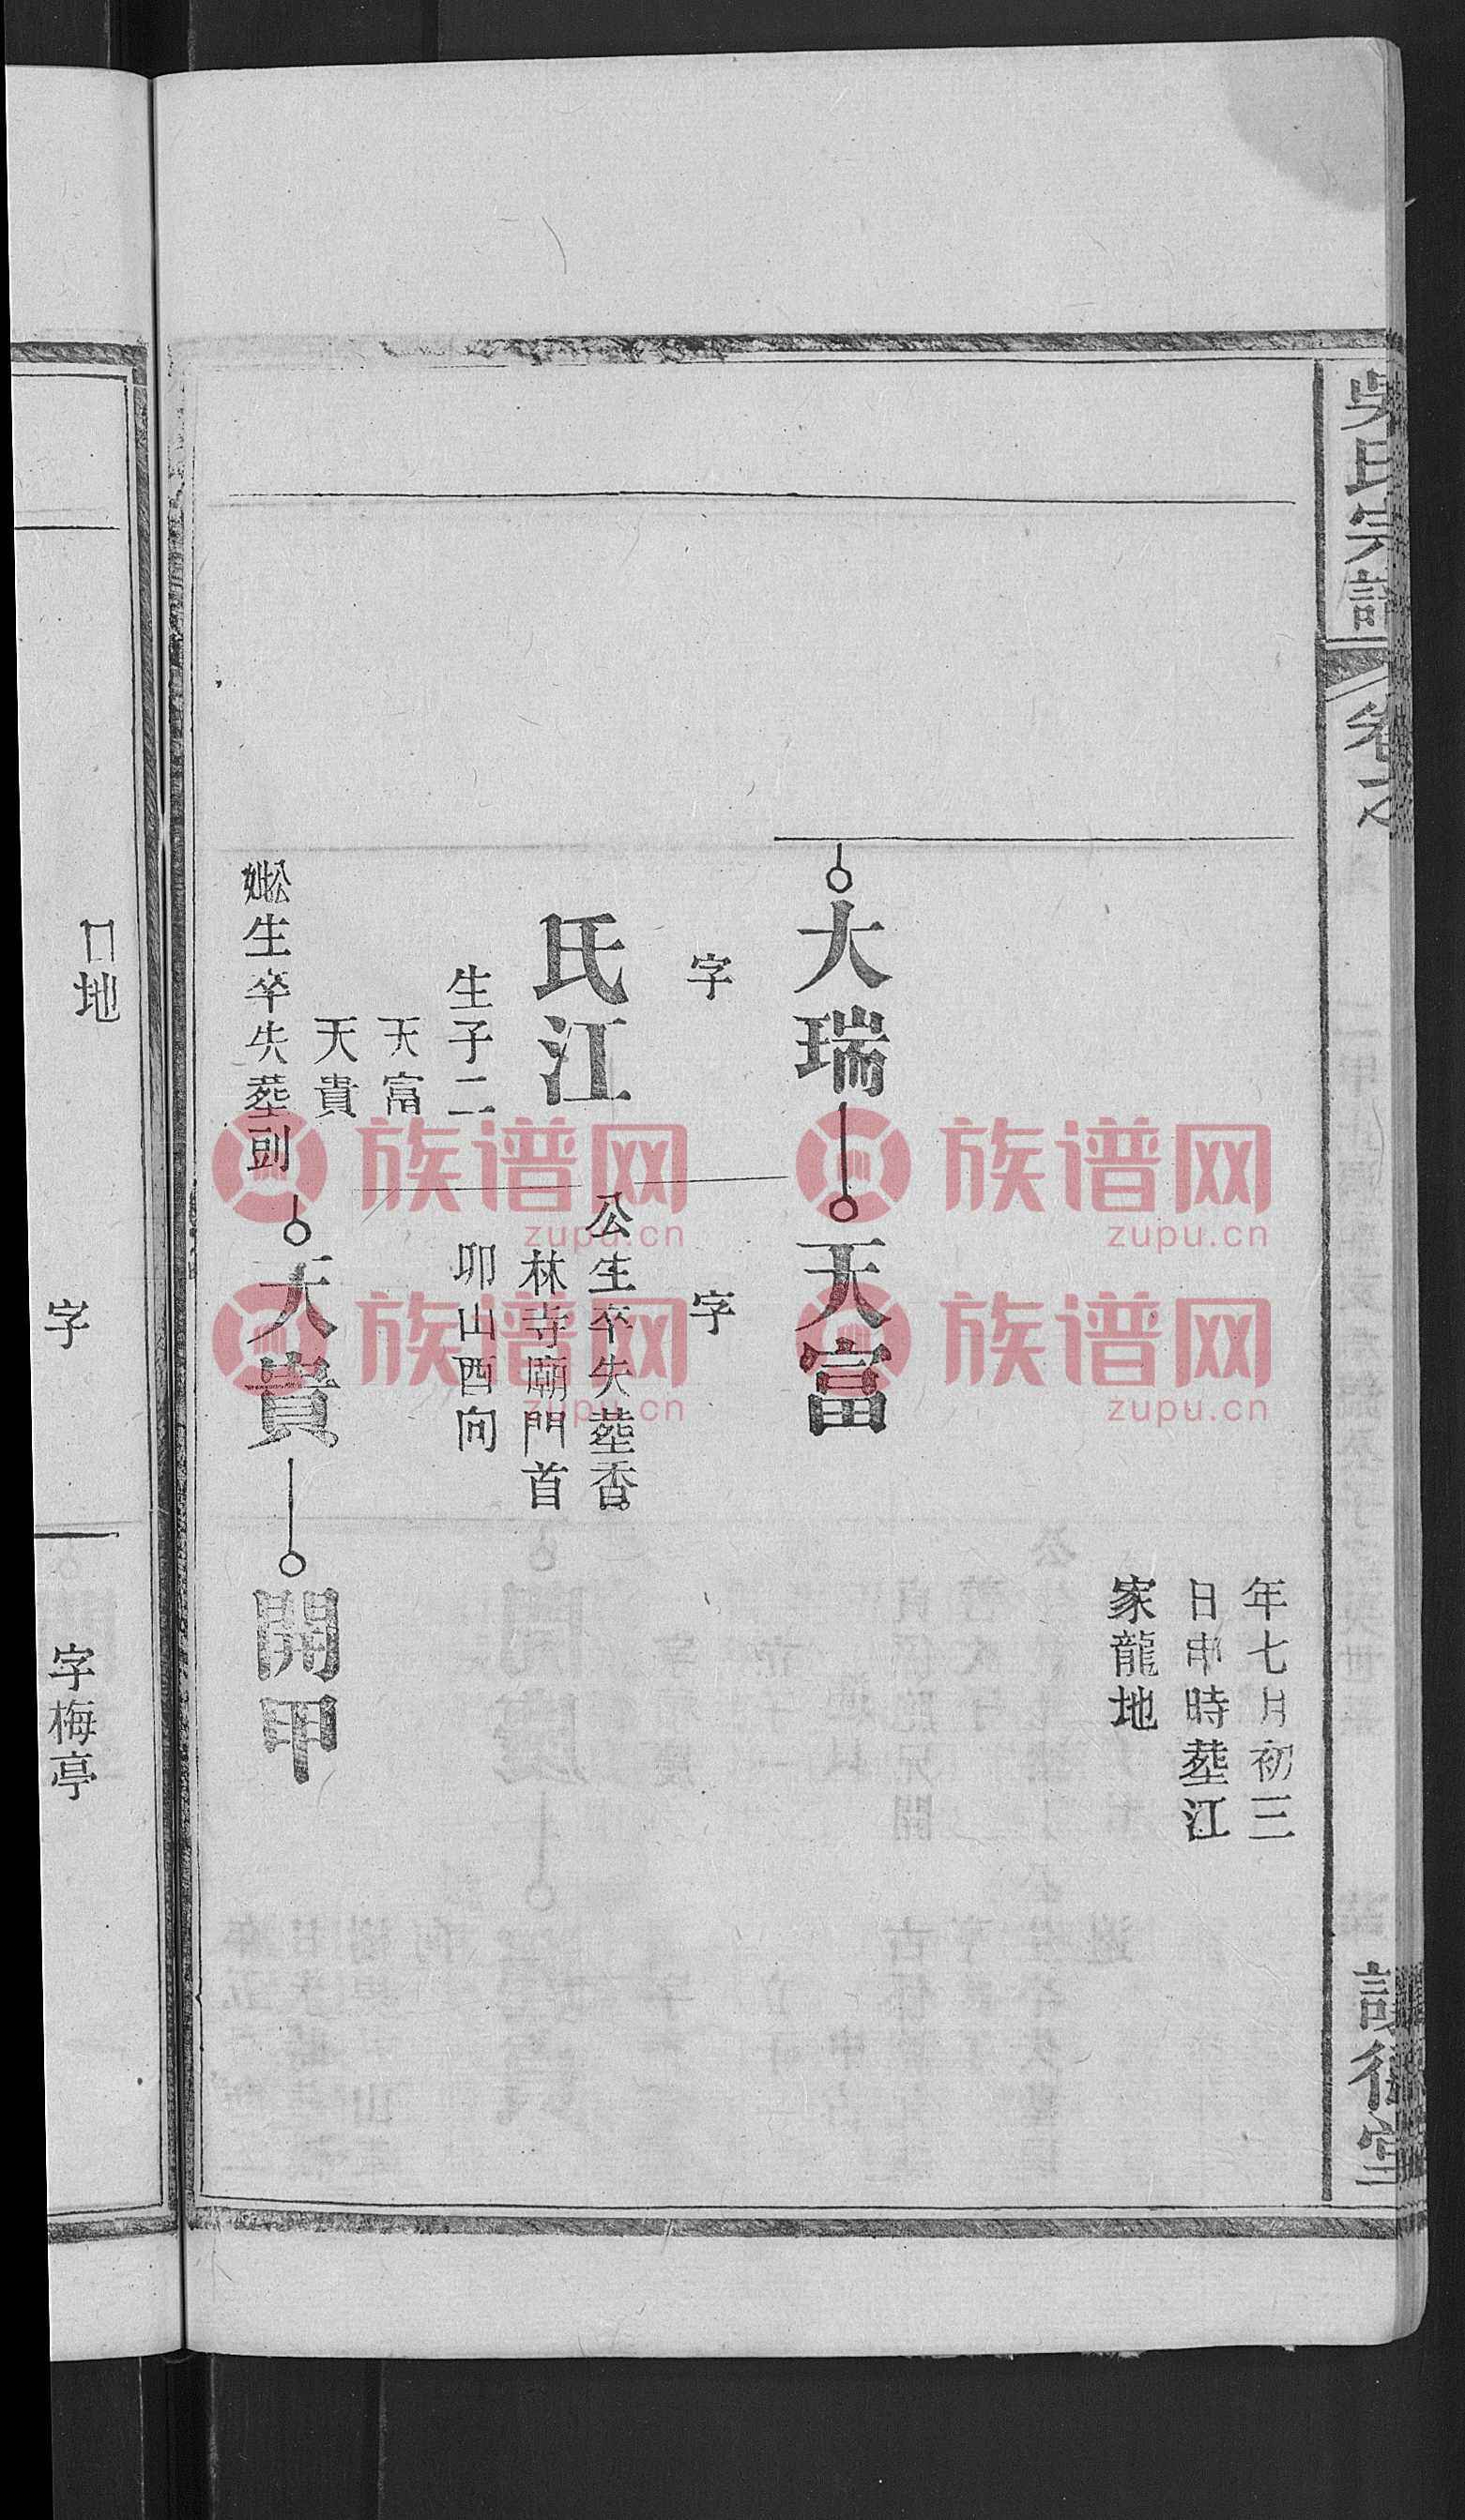 吳氏宗譜
卷
堂
年七月初三
日申時塟江
家龍地
大瑞
天富
字
字
氏江
公生卒失塟香
林寺廟門首
卯山酉向
生子二
天富
天貴
妣公生卒失塟
天貴
開甲
地
字
字梅亭
族谱网
zupu.cn
族谱网
zupu.cn
族谱网
zupu.cn
族谱网
zupu.cn